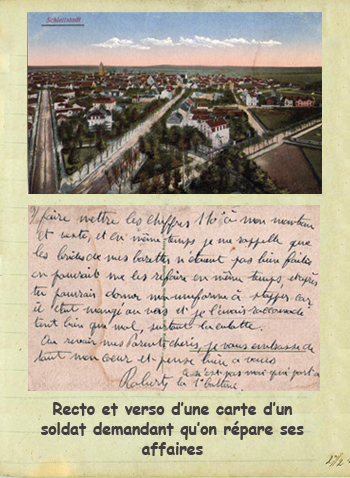 Schlettstadt
faire mettre les chiffres 110e à mon manteau
et veste, et en même temps je me rappelle que
les brides de mes n'étaient pas bien faites
on pourrait me les refaire en même temps, et après
tu pourrais donner mon uniforme à stopper car
il était mangé au vers et je l'avais raccommodé
tant bien que mal, surtout la culotte.
Au revoir mes Parents chéris, je vous embrasse de
tout mon cœur et pense bien à vous
ce n'est pas moi qui part
Robert
Recto et verso d'une carte d'un
soldat demandant qu'on répare ses
affaires